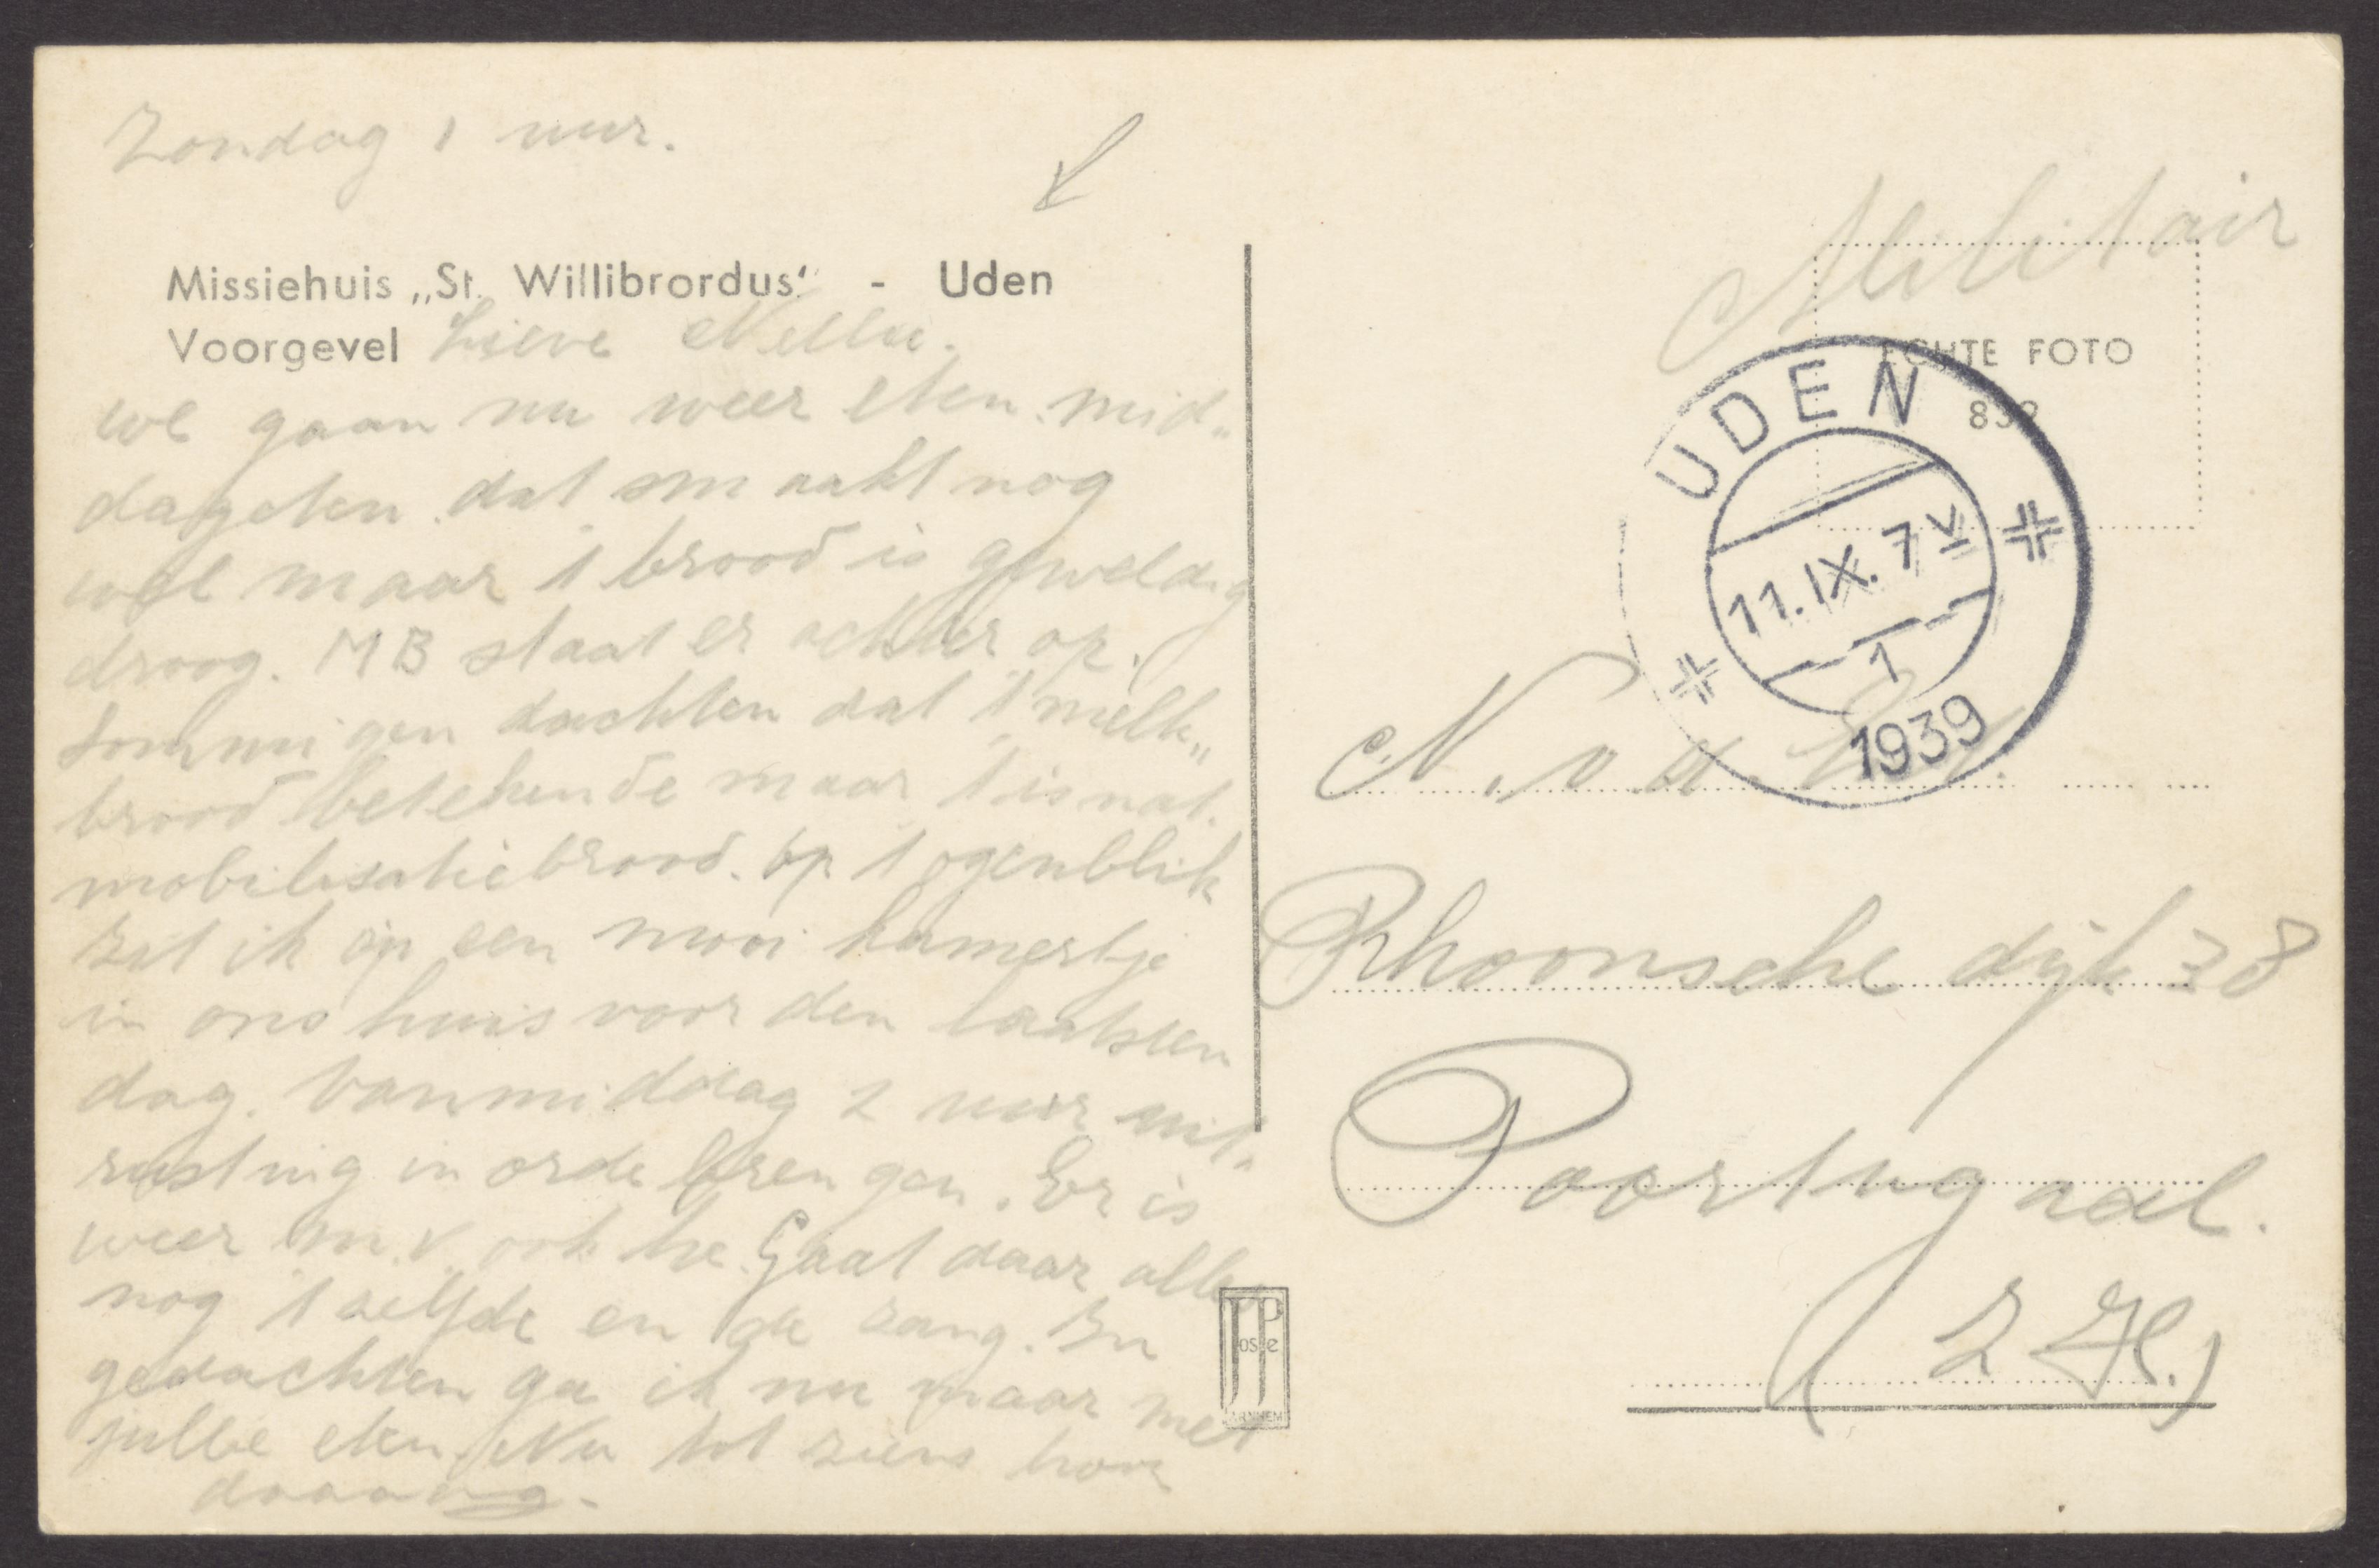 Zondag 1 uur.
Missiehuis „St. Willibrordus' - Uden
Voorgevel Lieve Nellie.
we gaan nu weer eten. mid„
dageten. dat smaakt nog
wel maar 't brood is geweldig
droog. MB staat er achter op.
Sommigen dachten dat 't melk„
brood betekende maar 't is nat.
mobilisatiebrood. Op 't ogenblik
zit ik op een mooi kamertje
in ons huis voor den laatsten
dag. Vanmiddag 2 uur uit„
rusting in orde brengen. Er is
weer m.v. ook he. Gaat daar alles
nog 't zelfde en de zang. In
gedachten ga ik nu maar met
jullie eten. Nu tot ziens hoor
daaaag.
Militair
ECHTE FOTO
832
UDEN
11.IX.7V
1
1939
N. v. d.
Rhoonsche dijk 38
Poortugaal.
(Z H.)
JP
osje
ARNHEM